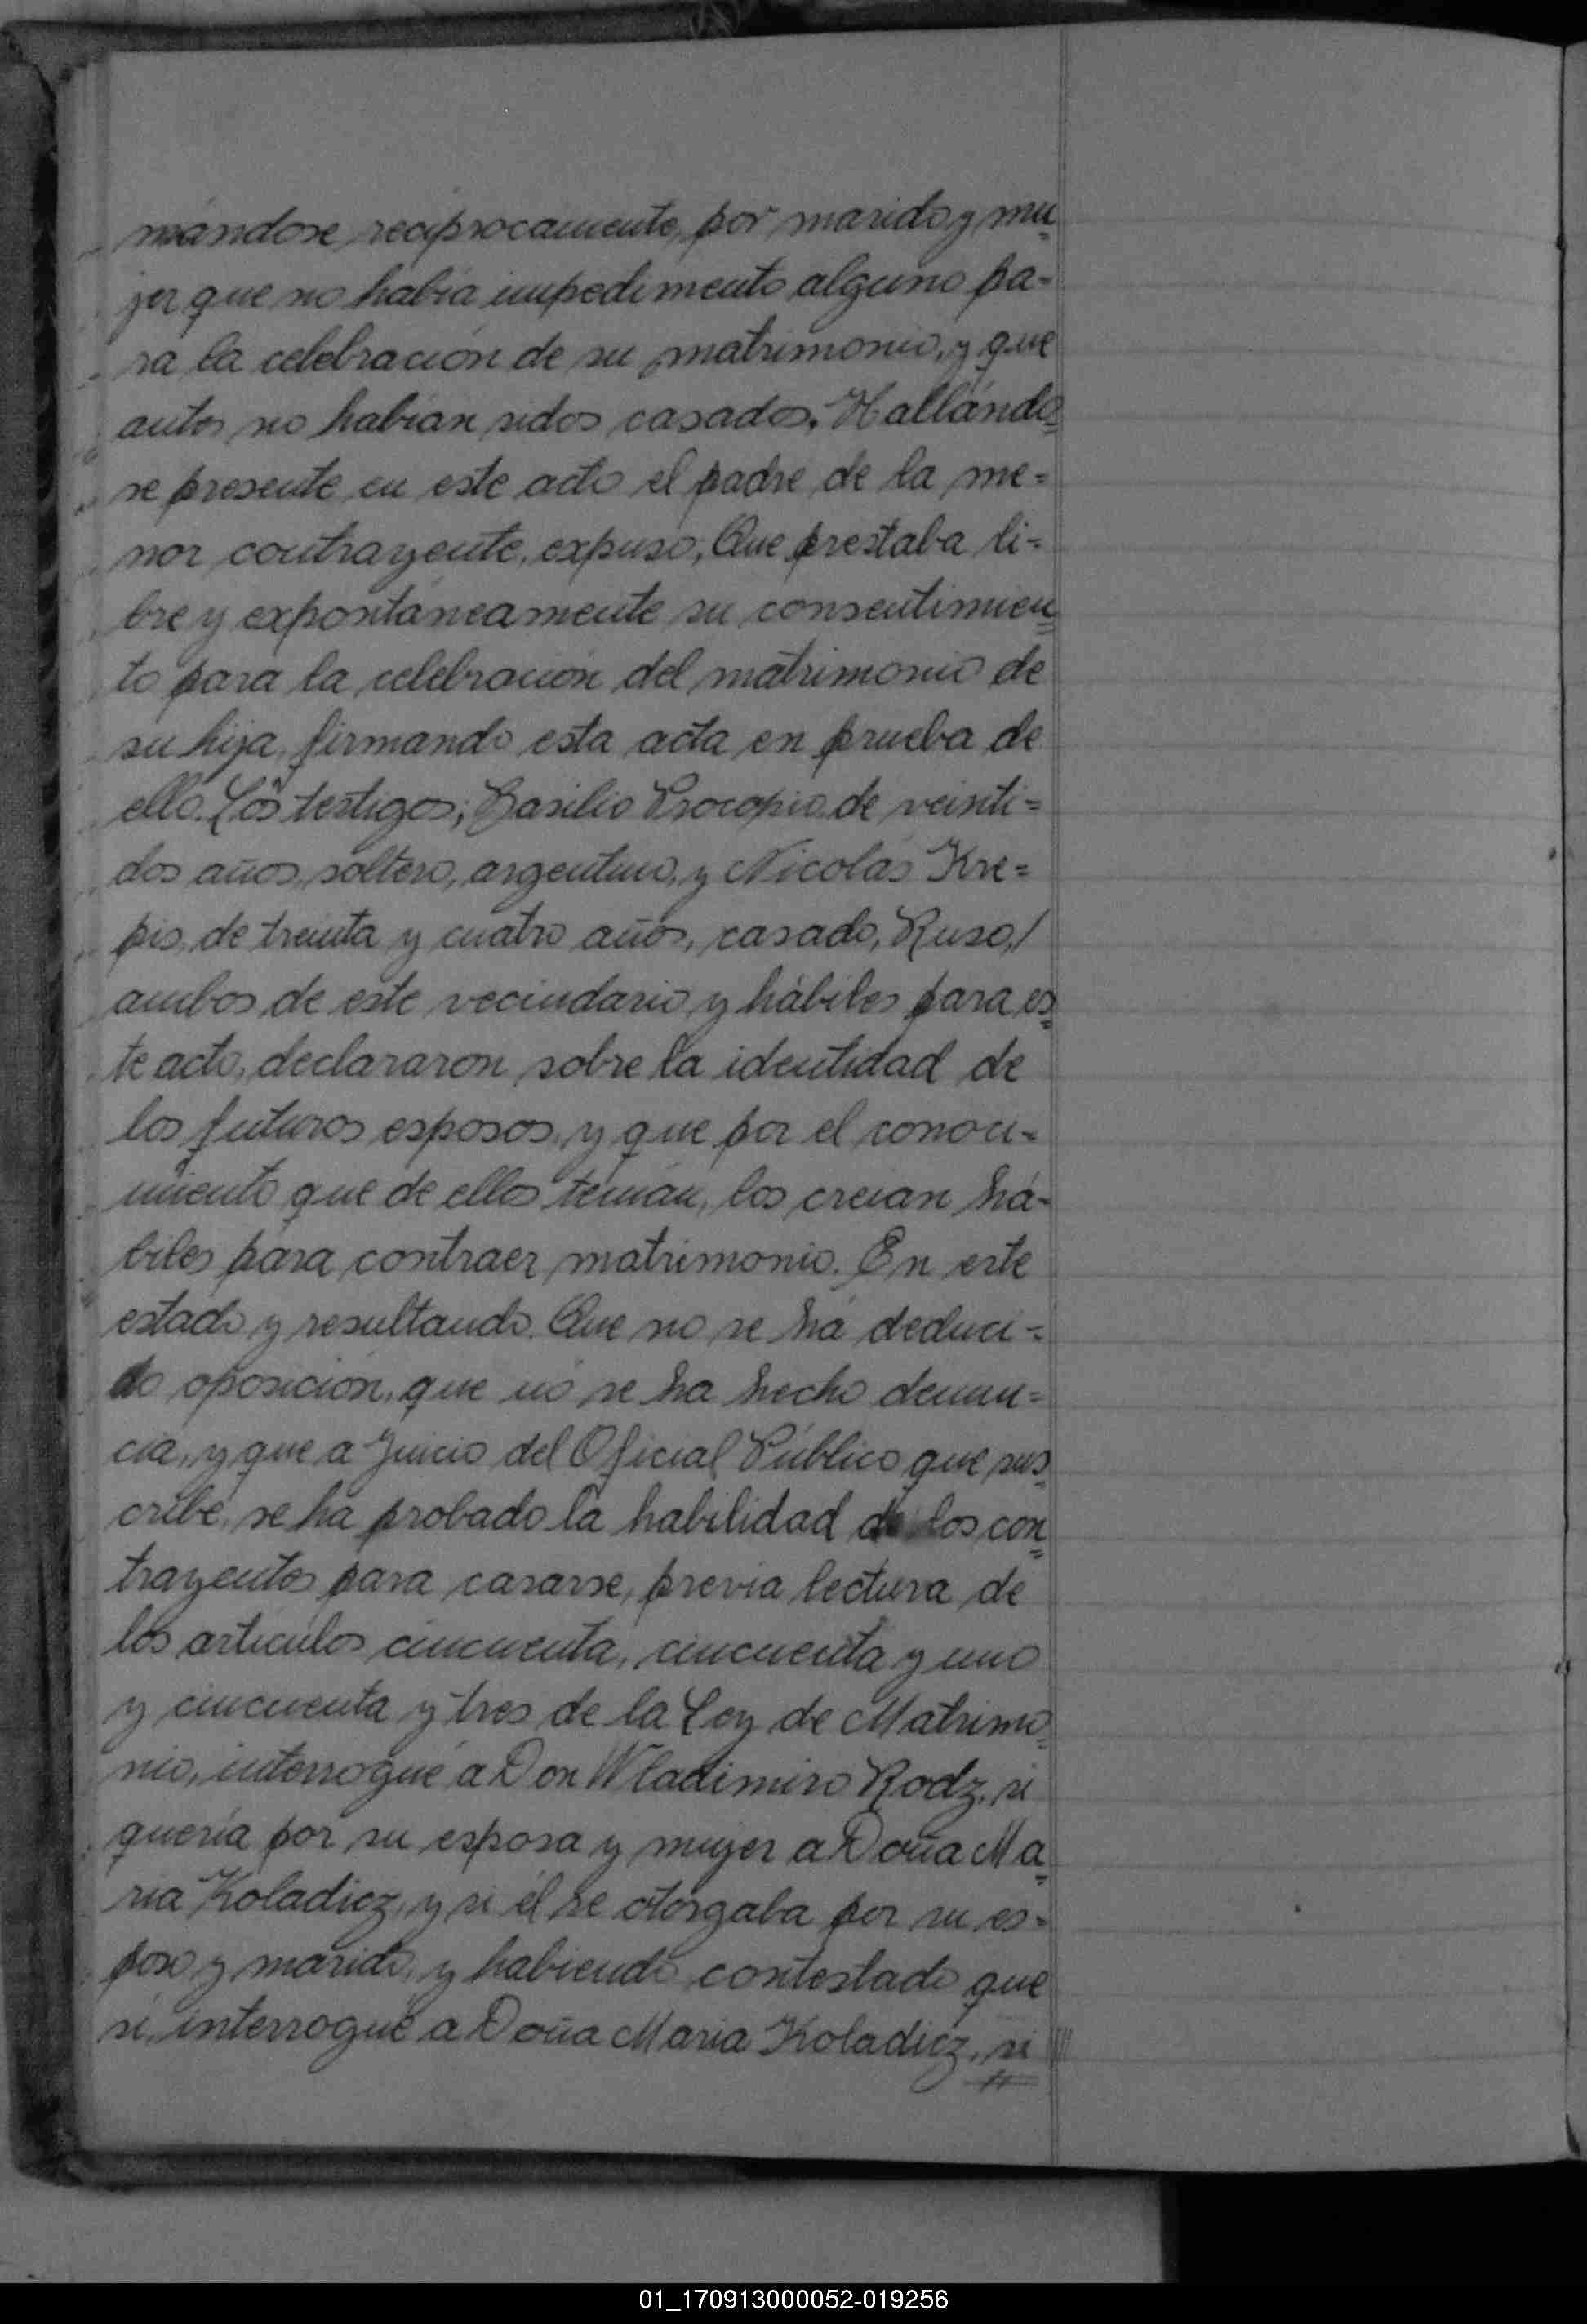 mándose, reciprocamente, por marido y mu=
jer que no habia impedimento alguno pa-
ra la celebración de su matrimonio, y que
antes no habían sidos casados. Hallándo=
se presente en este acto el padre de la me=
nor contrayente, expuso; Que prestaba li=
bre y expontáneamente su consentimien=
to para la celebración del matrimonio de
su hija, firmando esta acta en prueba de
ello. Los testigos; Basilio Procopio de veinti=
dos años, soltero, argentino, y Nicolás Kre=
pis, de treinta y cuatro años, casado, Ruso,/
ambos de este vecindario y hábiles para es=
te acto, declararon sobre la identidad de
los futuros esposos, y que por el conoci=
miento que de ellos tenían, los creian há-
biles para contraer matrimonio. En este
estado y resultando. Que no se há deduci=
do oposición, que no se ha hecho denun=
cia, y que a Juicio del Oficial Público que sus=
cribe, se ha probado la habilidad de los con=
trayentes para casarse, previa lectura de
los articulos cincuenta, cincuenta y uno
y cincuenta y tres de la Ley de Matrimo=
nio, interrogué a Don Wladimiro Rodz, si
quería por su esposa y mujer a Doña Ma=
ria Koladicz, y si él se otorgaba por su es=
poso y marido, y habiendo contestado que
si, interrogué a Doña Maria Koladicz, si
01_170913000052-019256